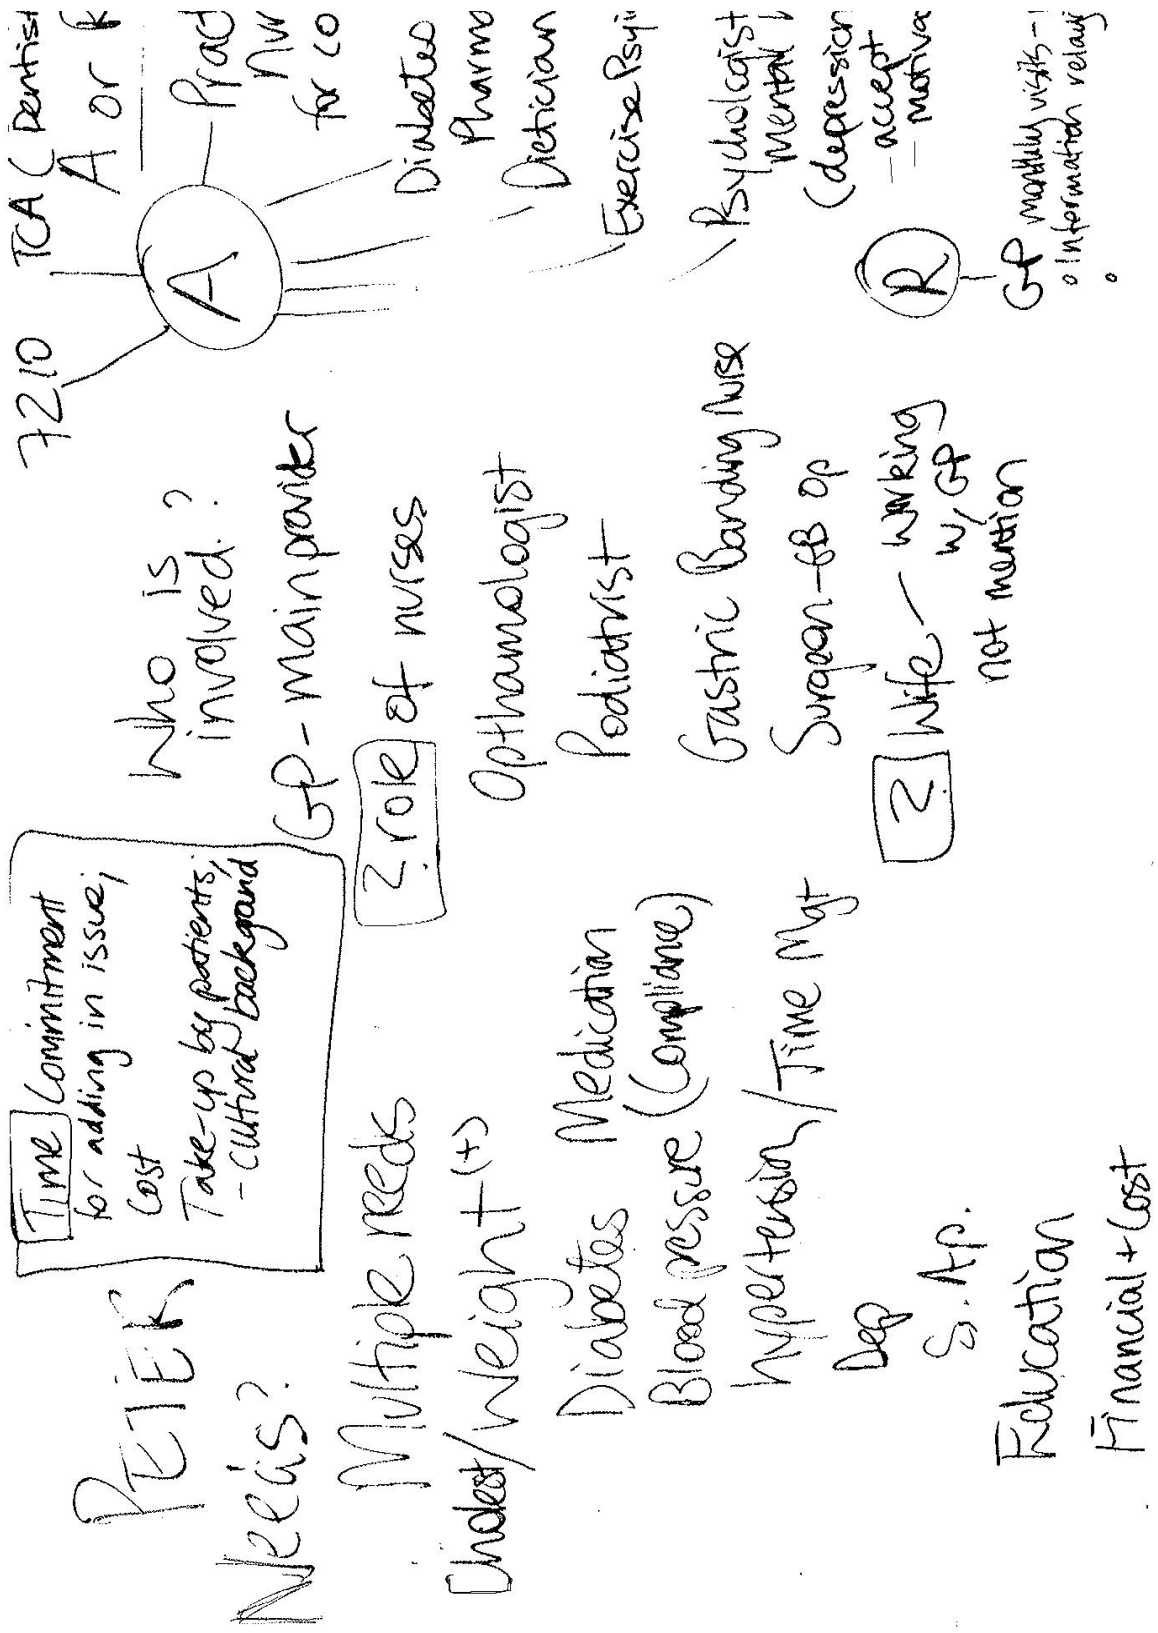 PETER
Needs?
Multiple needs
Cholest/Weight (+)
Diabetes Medication
Blood pressure (Compliance)
hypertension/Time Mgt
Dep
S. Ap.
Education
Financial + Cost
Time Commitment
for adding in issue,
Cost
Take-up by patients,
- cultural background
Who is
involved?
GP - main provider
? role of nurses
Opthamologist
Podiatrist
Gastric Banding Nurse
Surgeon - GB Op
? Wife - working
w/ GP
not mention
7210
TCA (Dentist
A or R
A
Pract
Nur
for co
Diabetes
Pharma
Dietician
Exercise Psy
Psychologist
Mental
(depression
- accept
- motiva
R
GP monthly visits -
o Information relay
o